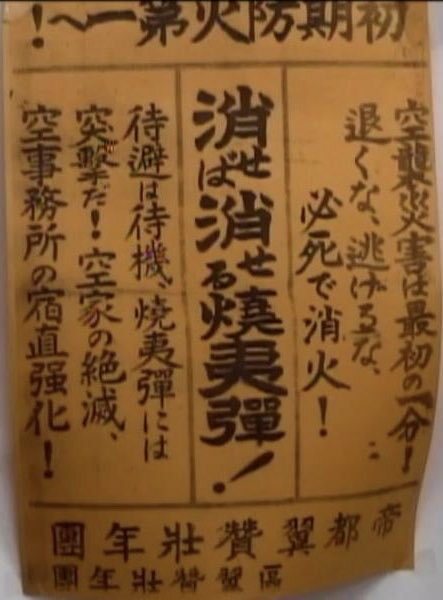 初期防火第一へ！
空襲災害は最初の一分！
退くな、逃げるな、
必死で消火！
消せば消せる燒夷彈！
待避は待機、燒夷彈には
突撃だ！空家の絶滅、
空事務所の宿直强化！
帝都翼贊壯年團
區翼贊壯年團